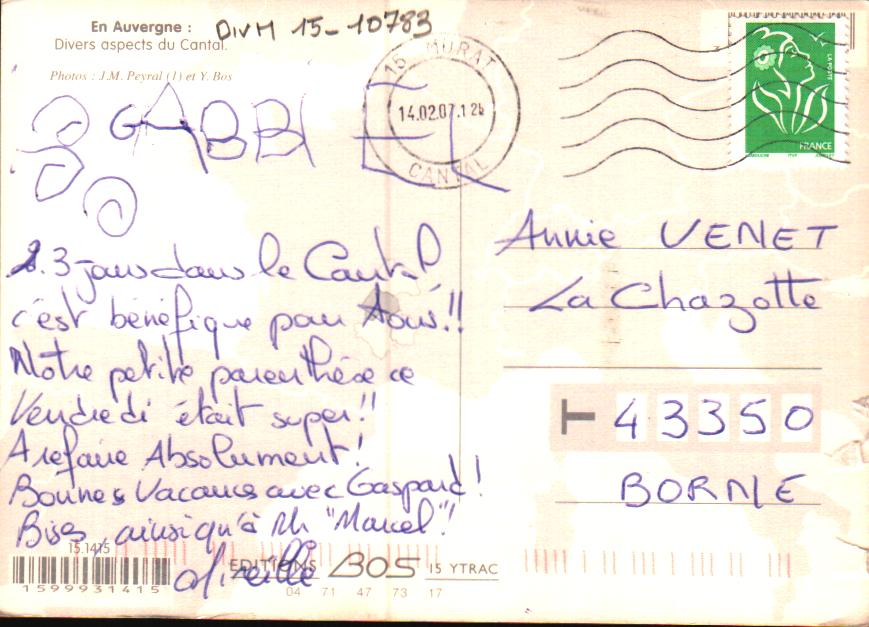 En Auvergne :
Divers aspects du Cantal.
DivM 15-10783
Photos : J.M. Peyral (1) et Y. Bos
GABBI EL
15 MURAT
14.02.07.
CANTAL
LA POSTE
FRANCE
3 jours dans le Cantal
c'est bénéfique pour Tous!!
Notre petite parenthèse ce
Vendredi était super!!
A refaire Absolument!
Bonnes Vacances avec Gaspard!
Bises, ainsi qu'à Mr "Marcel"!
Mireille
Annie VENET
La Chazotte
43350
BORNE
15.1415
1599931415
EDITIONS BOS 15 YTRAC
04 71 47 73 17